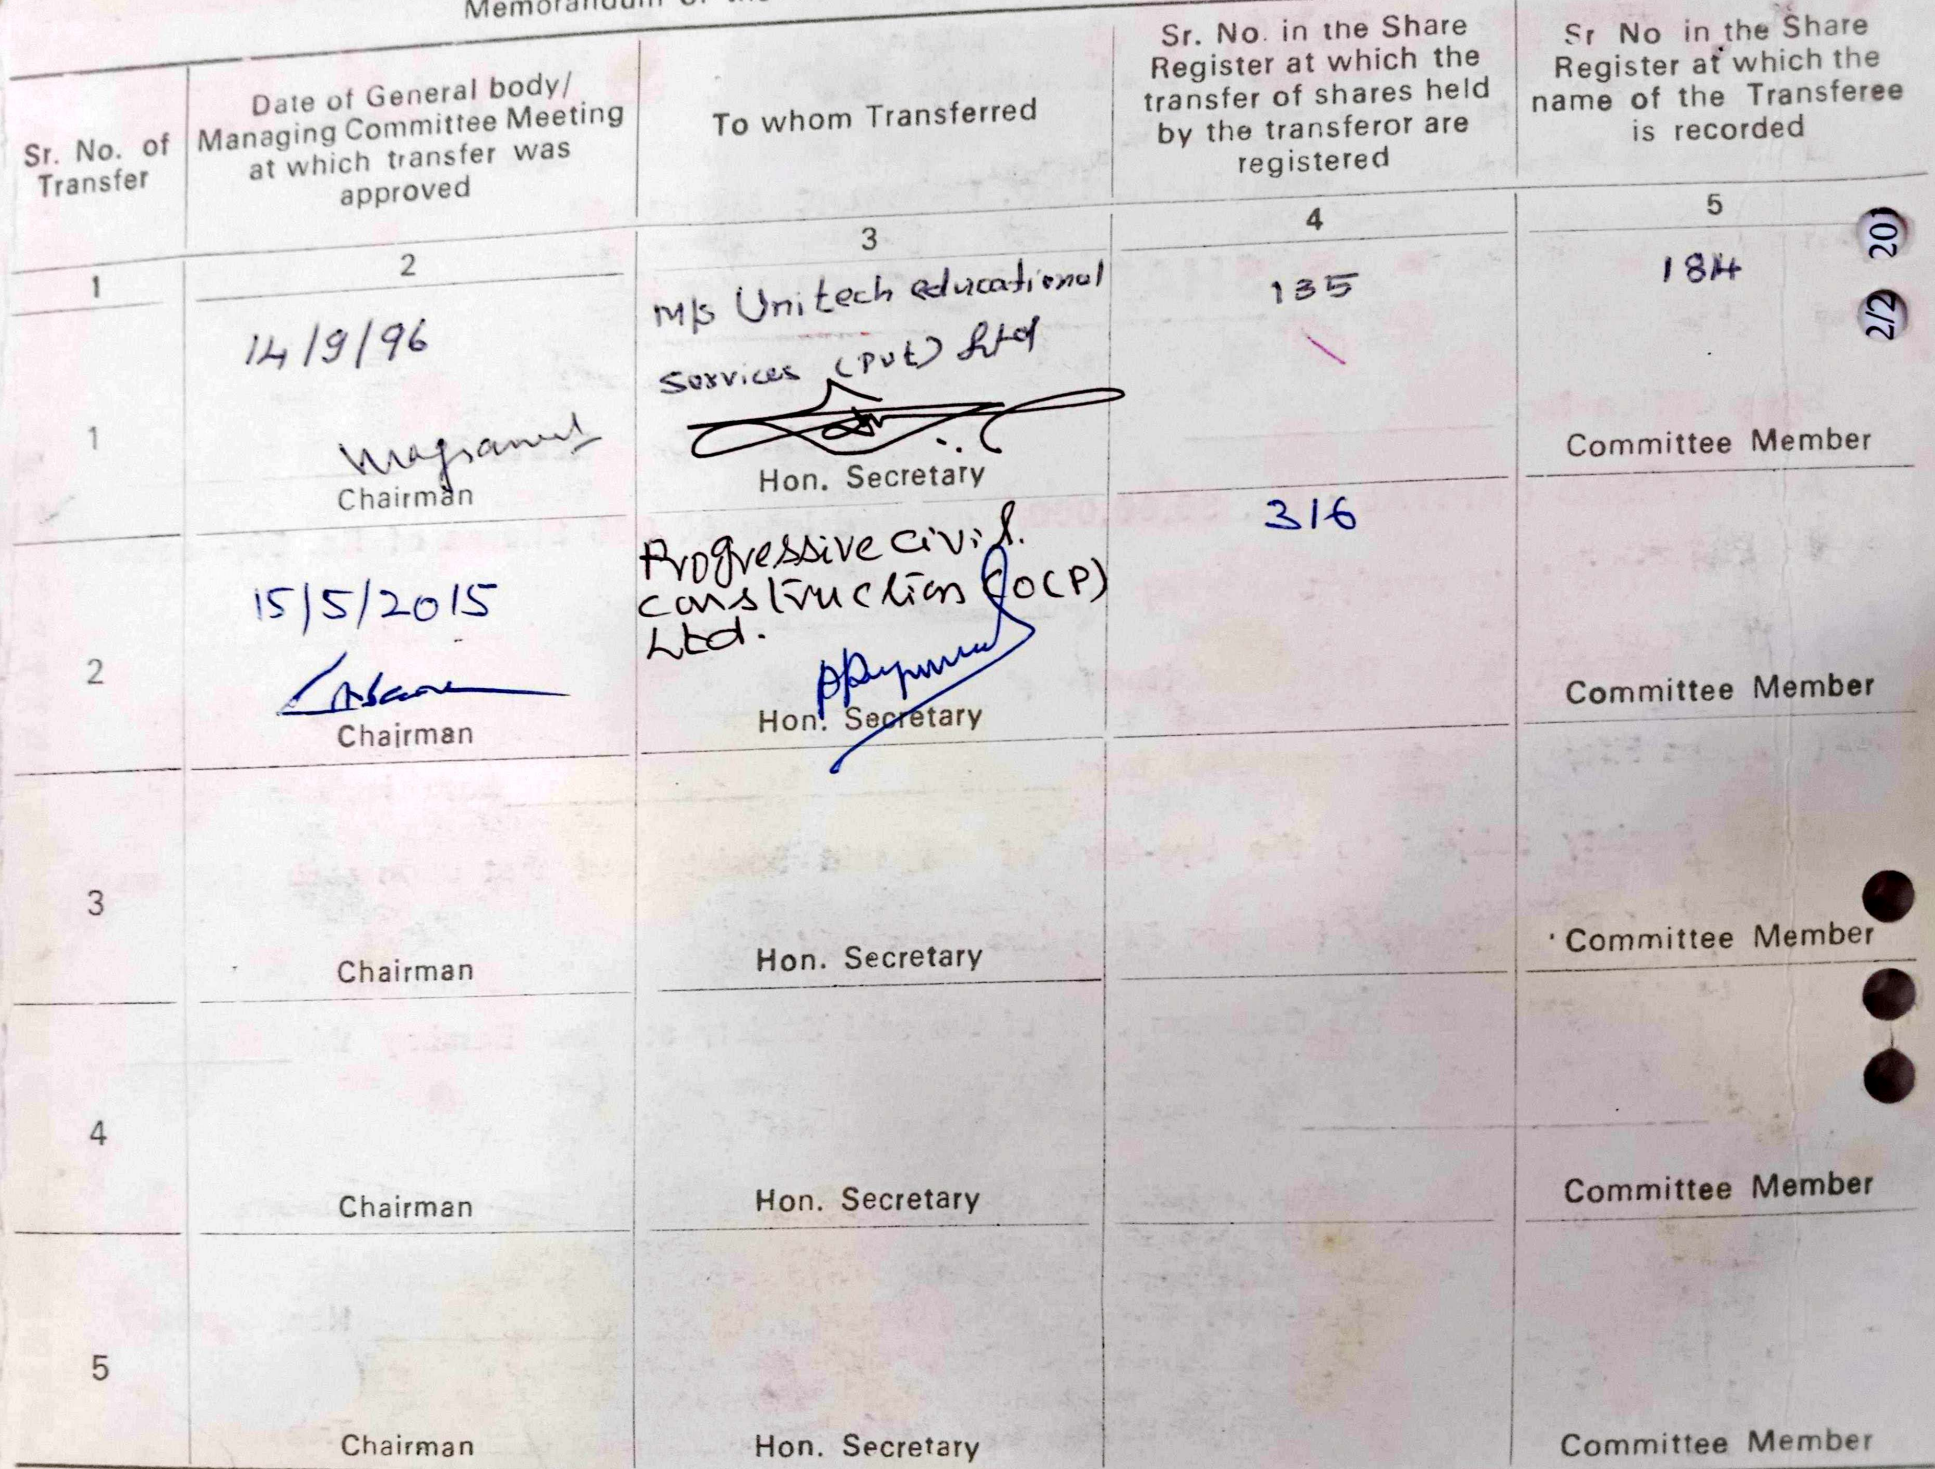 Memorandum of the
Sr. No. of
Transfer
Date of General body/
Managing Committee Meeting
at which transfer was
approved
To whom Transferred
Sr. No. in the Share
Register at which the
transfer of shares held
by the transferor are
registered
Sr No in the Share
Register at which the
name of the Transferee
is recorded
1
2
3
4
5
1
14/9/96
Chairman
M/s Unitech educational
Services (Pvt) Ltd
Hon. Secretary
135
184
Committee Member
2
15/5/2015
Chairman
Progressive civil.
construction Co(P)
Ltd.
Hon. Secretary
316
Committee Member
3
Chairman
Hon. Secretary
Committee Member
4
Chairman
Hon. Secretary
Committee Member
5
Chairman
Hon. Secretary
Committee Member
2/2 201